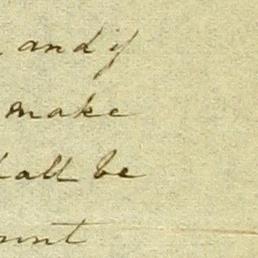 and if
make
hall be
unt